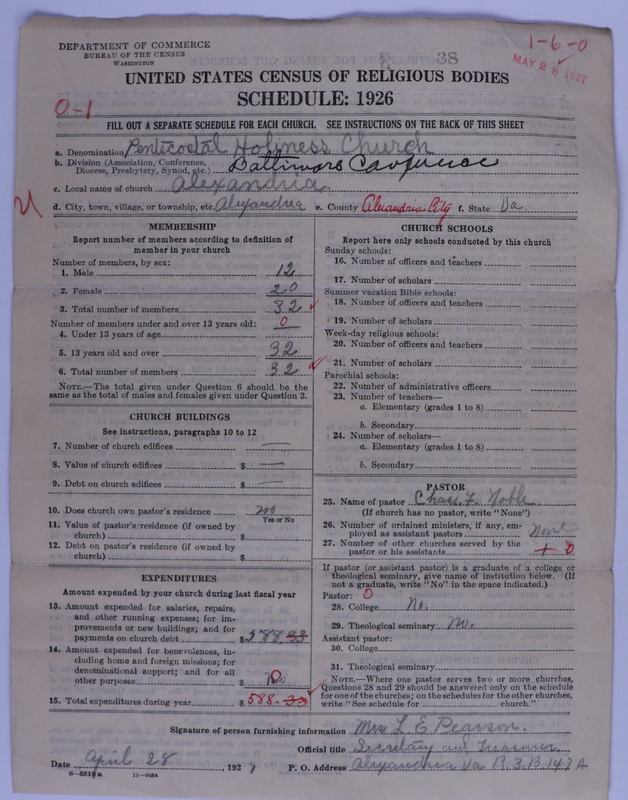 DEPARTMENT OF COMMERCE
BUREAU OF THE CENSUS
WASHINGTON
38
1-6-0
MAY 28 1927
UNITED STATES CENSUS OF RELIGIOUS BODIES
SCHEDULE: 1926
0-1
FILL OUT A SEPARATE SCHEDULE FOR EACH CHURCH. SEE INSTRUCTIONS ON THE BACK OF THIS SHEET
a. Denomination Pentecostal Holiness Church
b. Division (Association, Conference, Diocese, Presbytery, Synod, etc.) Baltimore Conference
c. Local name of church Alexandria
d. City, town, village, or township, etc. Alexandria e. County Alexandria City f. State Va
MEMBERSHIP
Report number of members according to definition of
member in your church
Number of members, by sex:
1. Male 12
2. Female 20
3. Total number of members 32
Number of members under and over 13 years old: 0
4. Under 13 years of age
5. 13 years old and over 32
6. Total number of members 32
NOTE.—The total given under Question 6 should be
same as the total of males and females given under Question 3.
CHURCH BUILDINGS
See instructions, paragraphs 10 to 12
7. Number of church edifices —
8. Value of church edifices $ —
9. Debt on church edifices $ —
10. Does church own pastor's residence no
Yes or No
11. Value of pastor's residence (if owned by
church) $
12. Debt on pastor's residence (if owned by
church) $
EXPENDITURES
Amount expended by your church during last fiscal year
13. Amount expended for salaries, repairs,
and other running expenses; for im-
provements or new buildings; and for
payments on church debt $ 588 33
14. Amount expended for benevolences, in-
cluding home and foreign missions; for
denominational support; and for all
other purposes $ No 0
15. Total expenditures during year $ 588.33
CHURCH SCHOOLS
Report here only schools conducted by this church
Sunday schools:
16. Number of officers and teachers
17. Number of scholars
Summer vacation Bible schools:
18. Number of officers and teachers
19. Number of scholars
Week-day religious schools:
20. Number of officers and teachers
21. Number of scholars
Parochial schools:
22. Number of administrative officers
23. Number of teachers—
a. Elementary (grades 1 to 8)
b. Secondary
24. Number of scholars—
a. Elementary (grades 1 to 8)
b. Secondary
PASTOR
25. Name of pastor Chas. F. Noble
(If church has no pastor, write "None")
26. Number of ordained ministers, if any, em-
ployed as assistant pastors None
27. Number of other churches served by the
pastor or his assistants 0
If pastor (or assistant pastor) is a graduate of a college or
theological seminary, give name of institution below. (If
not a graduate, write "No" in the space indicated.)
Pastor: 0
28. College No.
29. Theological seminary No.
Assistant pastor:
30. College
31. Theological seminary
NOTE.—Where one pastor serves two or more churches,
Questions 28 and 29 should be answered only on the schedule
for one of the churches; on the schedules for the other churches,
write "See schedule for church."
Signature of person furnishing information Mrs L E Pearson.
Official title Secretary and Treasurer
Date April 28, 1927 P. O. Address Alexandria Va R.3.B.147A
8—5518a 11—9084